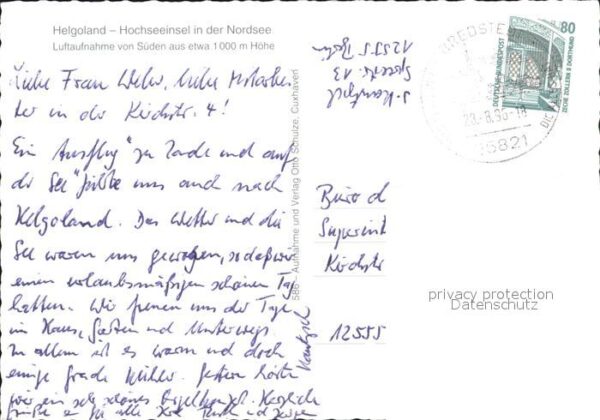 Helgoland – Hochseeinsel in der Nordsee
Luftaufnahme von Süden aus etwa 1000 m Höhe
Liebe Frau Weber, liebe Mitarbei-
ter in der Kirchstr. 4!
Ein Ausflug "zu Lande und auf
der See" führte uns auch nach
Helgoland. Das Wetter und die
See waren uns gewogen, sodaß wir
einen urlaubsmäßigen schönen Tag
hatten. Wir freuen uns der Tage
im Haus, Garten und Unterwegs
zu allem ist es warm und doch
einige Grade kühler. Gestern hörten
wir ein sehr schönes Orgelkonzert. Herzliche
Grüße an Sie alle
586 – Aufnahme und Verlag Otto Schulze, Cuxhaven
13
12555
Büro d
Superint
Kirchstr
12555
BREDSTEDT
23.8.95-18
25821
80
DEUTSCHE BUNDESPOST
ZECHE ZOLLERN II DORTMUND
privacy protection
Datenschutz